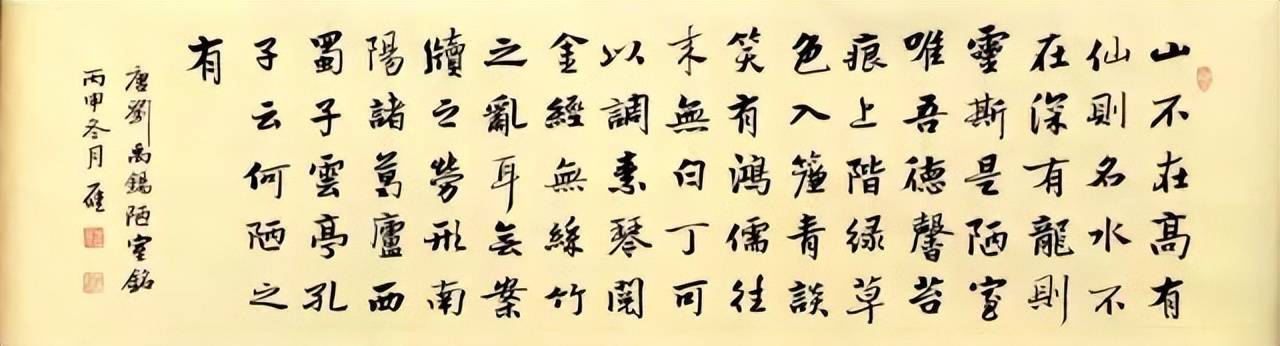 山不在高有
仙則名水不
在深有龍則
靈斯是陋室
唯吾德馨苔
痕上階緑草
色入簾青談
笑有鴻儒往
来無白丁可
以調素琴閱
金經無絲竹
之亂耳无案
牘之勞形南
陽諸葛廬西
蜀子雲亭孔
子云何陋之
有
唐劉禹錫陋室銘
丙申冬月